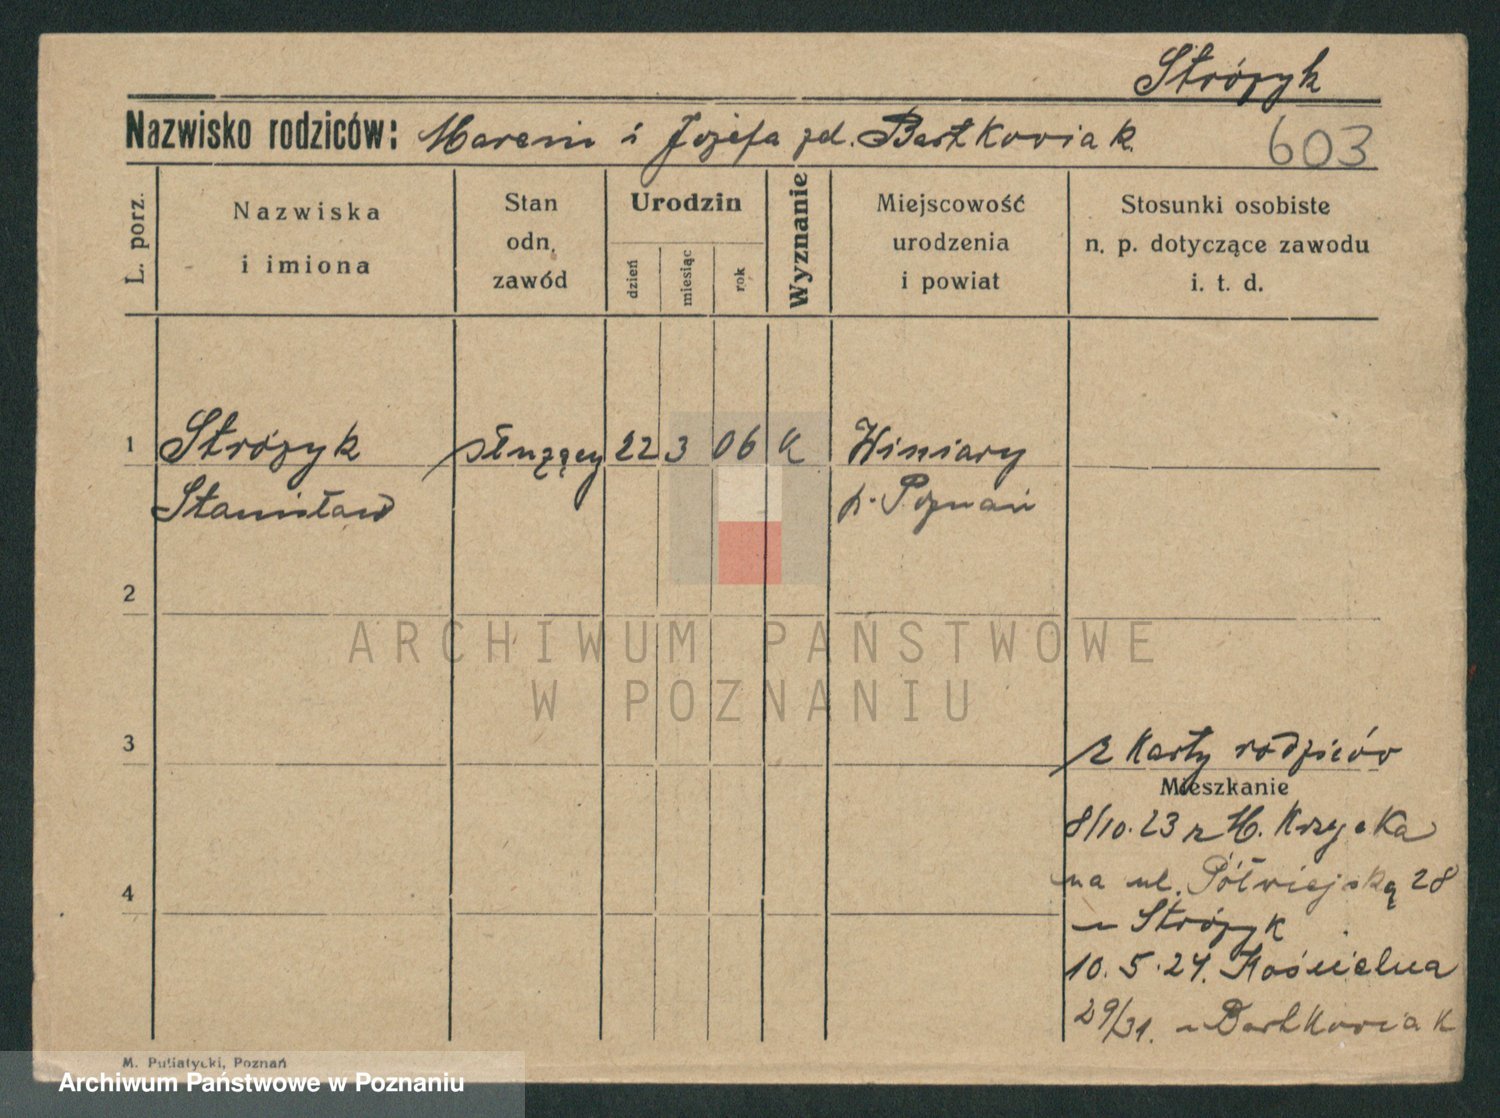 Stróżyk
Nazwisko rodziców: Marcin i Józefa zd. Bartkowiak.
603
L. porz.
Nazwiska
i imiona
Stan
odn.
zawód
Urodzin
dzień
miesiąc
rok
Wyznanie
Miejscowość
urodzenia
i powiat
Stosunki osobiste
n. p. dotyczące zawodu
i. t. d.
1 Stróżyk służący 22 3 06 K Winiary
Stanisław p. Poznań
2
ARCHIWUM PAŃSTWOWE
W POZNANIU
3
z karty rodziców
Mieszkanie
8/10.23 z M.
na ul. Półwiejską 28
u Stróżyk
4
10.5.24. Kościelna
29/31. u Bartkowiak
M. Putiatycki, Poznań
Archiwum Państwowe w Poznaniu